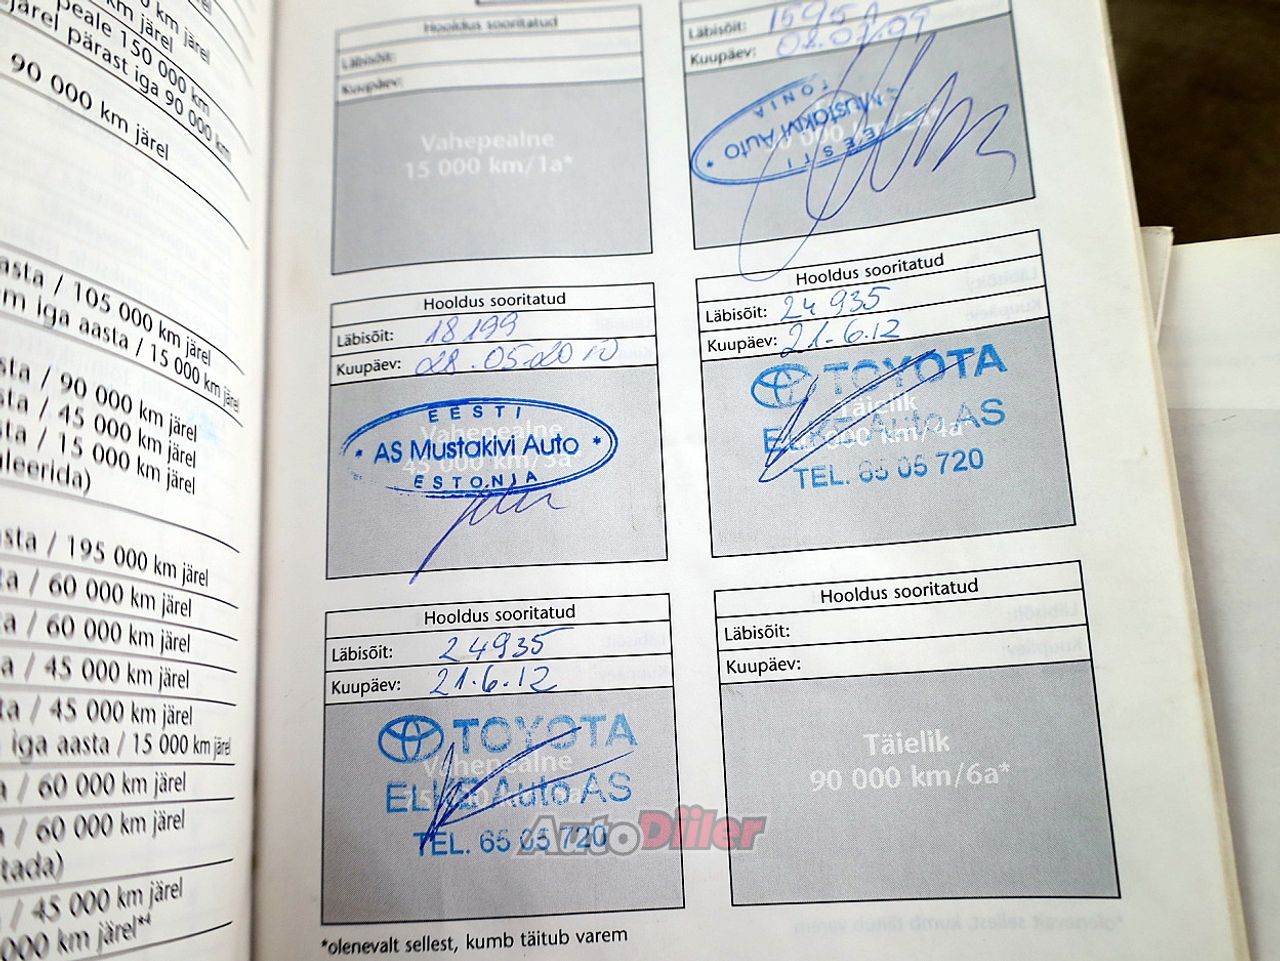 km järel
km järel
peale 150 000 km
järel pärast iga 90 000 km
90 000 km järel
aasta / 105 000 km järel
iga aasta / 15 000 km järel
/ 90 000 km järel
/ 45 000 km järel
/ 15 000 km järel
/ 195 000 km järel
/ 60 000 km järel
/ 60 000 km järel
/ 45 000 km järel
/ 45 000 km järel
iga aasta / 15 000 km järel
/ 60 000 km järel
/ 60 000 km järel
/ 45 000 km järel
000 km järel*4
Hooldus sooritatud
Läbisõit:
Kuupäev:
Vahepealne
15 000 km/1a*
Läbisõit:
Kuupäev:
EESTI
* AS Mustakivi Auto *
ESTONIA
Hooldus sooritatud
Läbisõit: 18 199
Kuupäev: 28.05.2010
Vahepealne
45 000 km/3a*
EESTI
* AS Mustakivi Auto *
ESTONIA
Hooldus sooritatud
Läbisõit: 24 935
Kuupäev: 21.6.12
Täielik
000 km/4a*
TOYOTA
ELKE Auto AS
TEL. 65 05 720
Hooldus sooritatud
Läbisõit: 24935
Kuupäev: 21.6.12
Vahepealne
TOYOTA
ELKE Auto AS
TEL. 65 05 720
Hooldus sooritatud
Läbisõit:
Kuupäev:
Täielik
90 000 km/6a*
AutoDiiler
*olenevalt sellest, kumb täitub varem